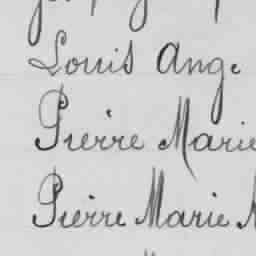 Louis Ange
Pierre Marie
Pierre Marie